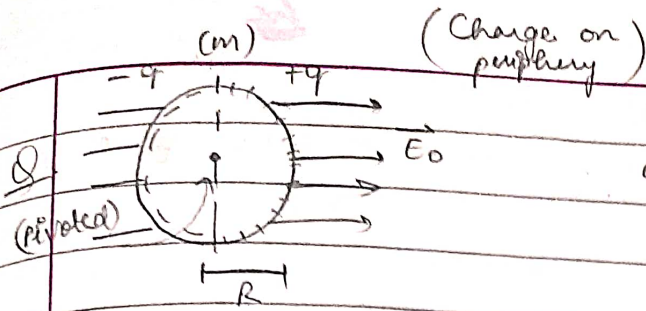 (m) (Charge on
periphery)
-q +q
E₀
Q
(pivoted)
R